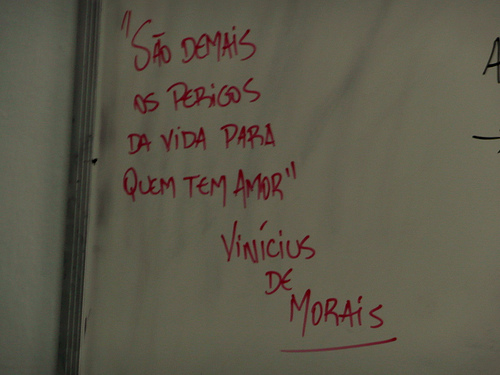 "SÃO DEMAIS
OS PERIGOS
DA VIDA PARA
QUEM TEM AMOR"
VINÍCIUS
DE
MORAIS
A